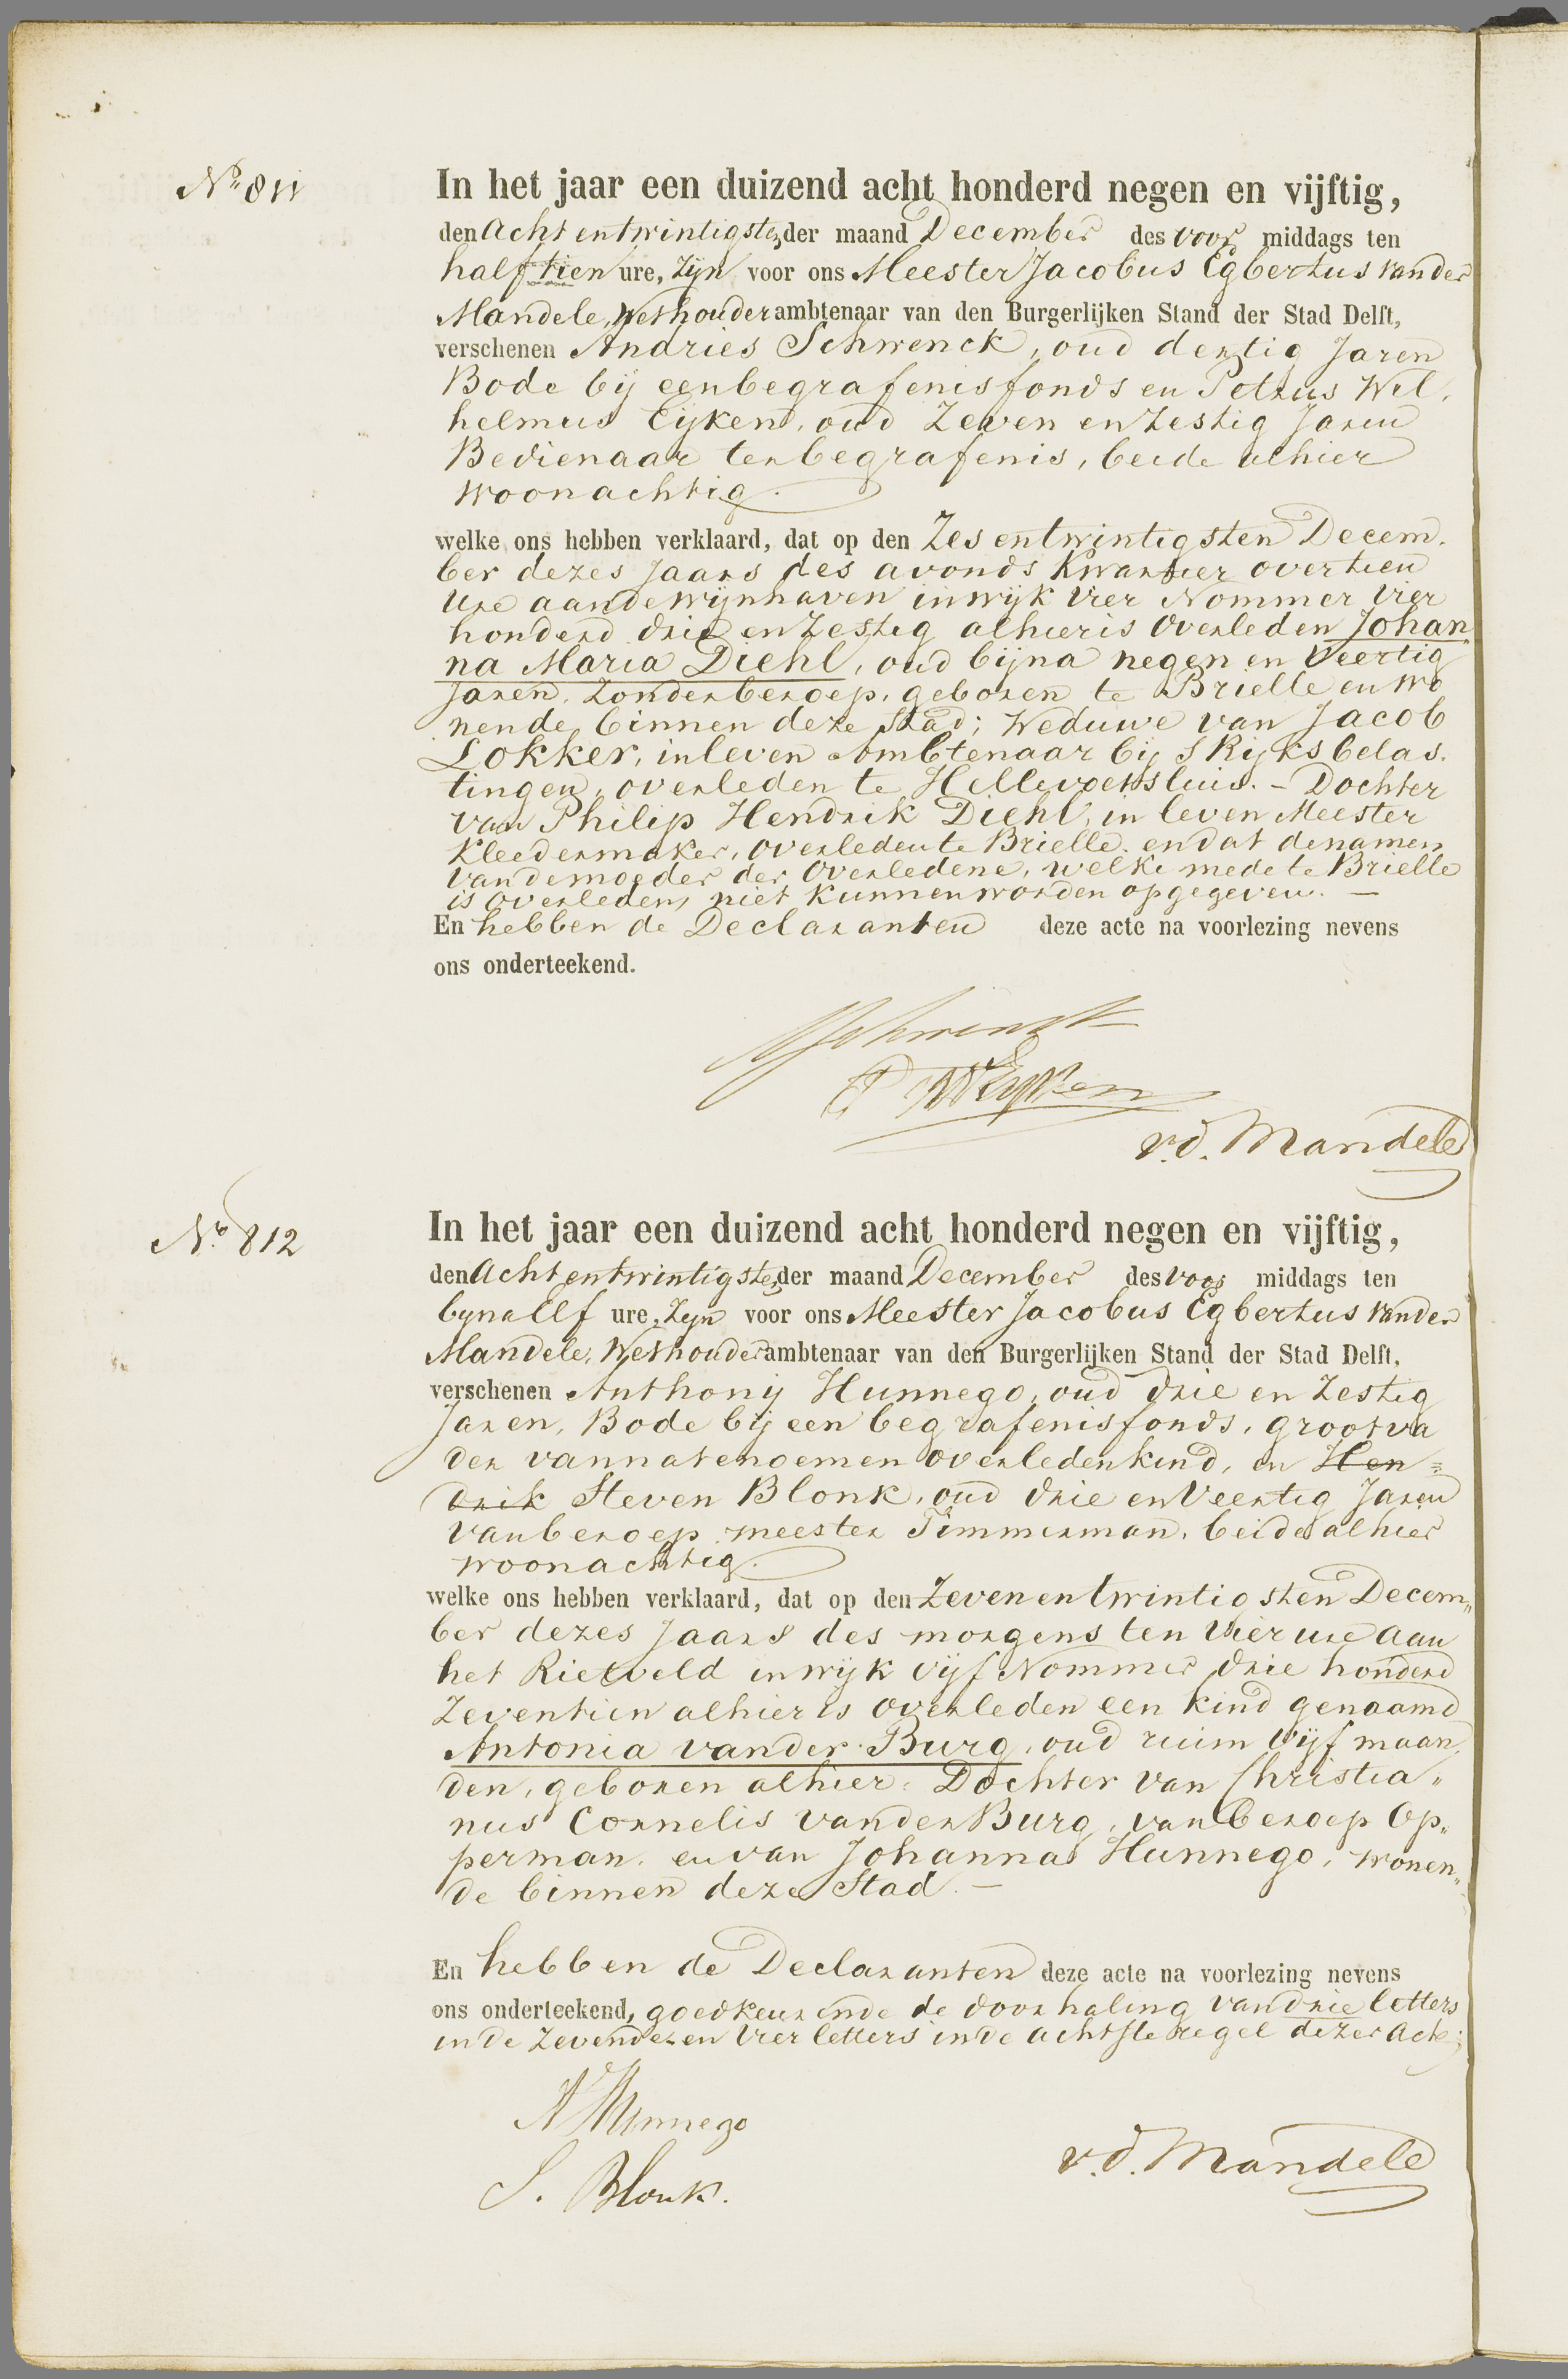 No 811
In het jaar een duizend acht honderd negen en vijftig,
den Acht entwintigsten der maand December des voor middags ten
half tien ure, Zijn voor ons Meester Jacobus Egbertus van der
Mandele, Wethouder ambtenaar van den Burgerlijken Stand der Stad Delft,
verschenen Andries Schwenck, oud dertig Jaren
Bode bij een begrafenisfonds en Petrus Wil,
helmus Eijken, oud Zeven en Zestig Jaren
Bedienaar ter begrafenis, beide alhier
woonachtig.
welke ons hebben verklaard, dat op den Zes entwintigsten Decem.
ber dezes Jaars des avonds Kwartier over tien
Ure aan de Wijnhaven in wijk Vier Nommer Vier
honderd drie en Zestig alhier is Overleden Johan
na Maria Diehl, oud bijna negen en Veertig
Jaren, Zonder beroep, geboren te Brielle en wo
nende binnen deze Stad; Weduwe van Jacob
Lokker, in leven Ambtenaar bij 's Rijks belas.
tingen, overleden te Hellevoetsluis. - Dochter
van Philip Hendrik Diehl, in leven Meester
Kleedermaker, Overleden te Brielle, en dat de namen
van de moeder der Overledene, welke mede te Brielle
is Overleden, niet kunnen worden opgegeven. —
En hebben de Declaranten deze acte na voorlezing nevens
ons onderteekend.
A Schwenck
P W Eijken
v.d. Mandele
No. 812
In het jaar een duizend acht honderd negen en vijftig,
den Acht entwintigsten der maand December des voor middags ten
bijna Elf ure, Zijn voor ons Meester Jacobus Egbertus van der
Mandele, Wethouder ambtenaar van den Burgerlijken Stand der Stad Delft,
verschenen Anthonij Hunnego, oud drie en Zestig
Jaren, Bode bij een begrafenisfonds, grootva
der van na te noemen overleden kind, en Hen=
drik Steven Blonk, oud drie en Veertig Jaren
van beroep meester Timmerman, beide alhier
woonachtig.
welke ons hebben verklaard, dat op den Zeven entwintigsten Decem„
ber dezes Jaars des morgens ten Vier ure aan
het Rietveld in wijk Vijf Nommer drie honderd
Zeventien alhier is Overleden een kind genaamd
Antonia van der Burg, oud ruim Vijf maan
den, geboren alhier, Dochter van Christia„
nus Cornelis van der Burg, van beroep Op„
perman, en van Johanna Hunnego, wonen„
de binnen deze Stad. —
En hebben de Declaranten deze acte na voorlezing nevens
ons onderteekend, goedkeurende de doorhaling van drie letters
in de Zevende en Vier letters in de achtste regel dezer Acte;
A Hunnego
S. Blonk.
v.d. Mandele